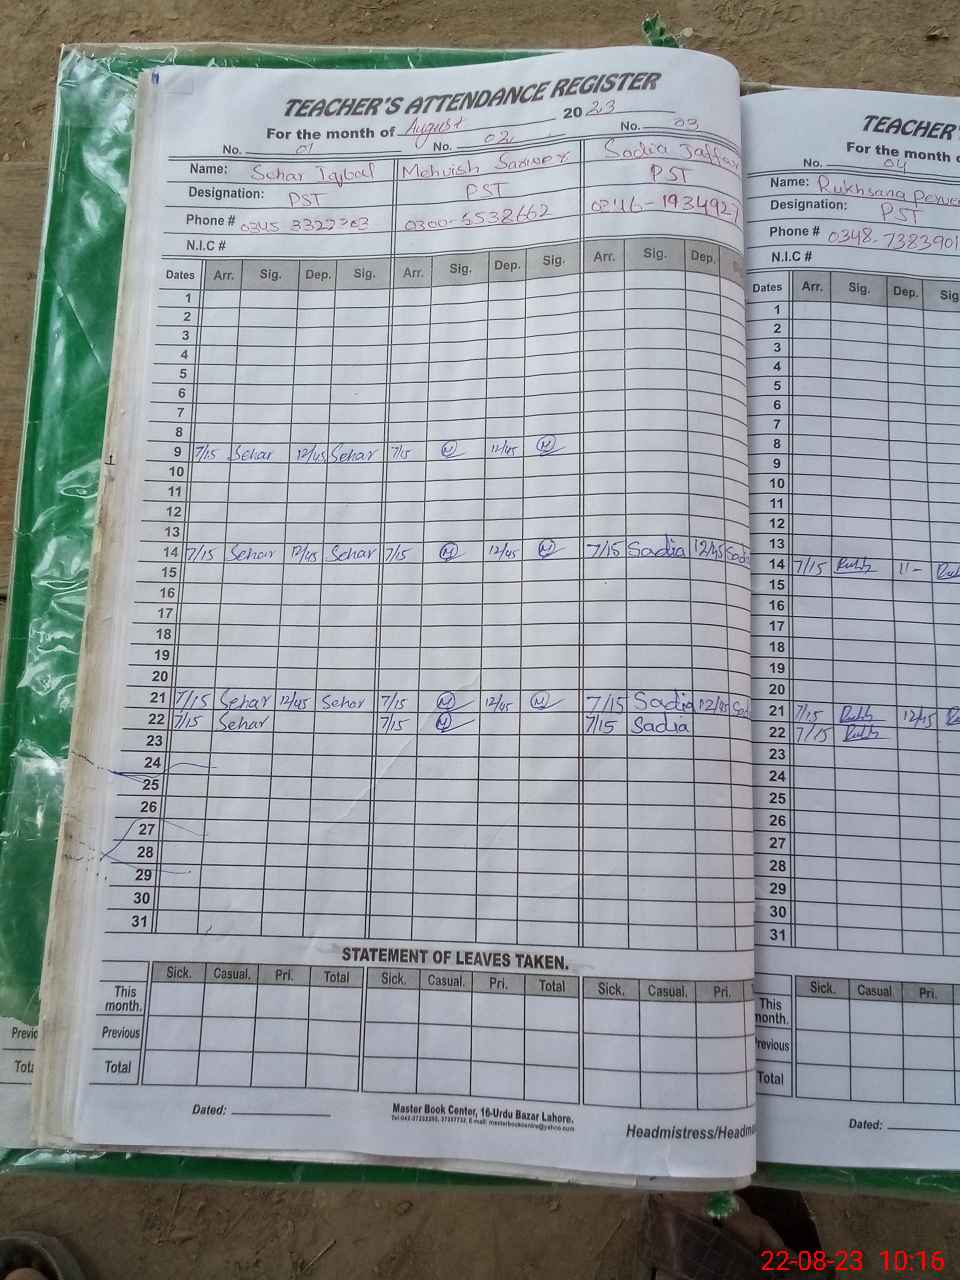 TEACHER'S ATTENDANCE REGISTER
For the month of August 2023
No. 01 No. 02 No. 03
Name: Sehar Iqbal Mehvish Sarwer Sadia Jaffar
Designation: PST PST PST
Phone # 0345 3322303 0300-6538662 0346-1934927
N.I.C #
Dates Arr. Sig. Dep. Sig. Arr. Sig. Dep. Sig. Arr. Sig. Dep.
1
2
3
4
5
6
7
8
9 7/15 Sehar 12/45 Sehar 7/15 M 12/45 M
10
11
12
13
14 7/15 Sehar 12/45 Sehar 7/15 M 12/45 M 7/15 Sadia 12/45 Sadi
15
16
17
18
19
20
21 7/15 Sehar 12/45 Sehar 7/15 M 12/45 M 7/15 Sadia 12/45 Sad
22 7/15 Sehar 7/15 M 7/15 Sadia
23
24
25
26
27
28
29
30
31
STATEMENT OF LEAVES TAKEN.
Sick. Casual. Pri. Total Sick. Casual. Pri. Total Sick. Casual. Pri.
This month.
Previous
Total
Dated:
Master Book Center, 16-Urdu Bazar Lahore.
Headmistress/Headma
TEACHER'
For the month o
No. 04
Name: Rukhsana
Designation: PST
Phone # 0348-7383901
N.I.C #
Dates Arr. Sig. Dep. Sig
1
2
3
4
5
6
7
8
9
10
11
12
13
14 7/15 11-
15
16
17
18
19
20
21 7/15 12/45
22 7/15
23
24
25
26
27
28
29
30
31
Sick. Casual Pri.
This month.
Previous
Total
Dated:
Previo
Tota
22-08-23 10:16